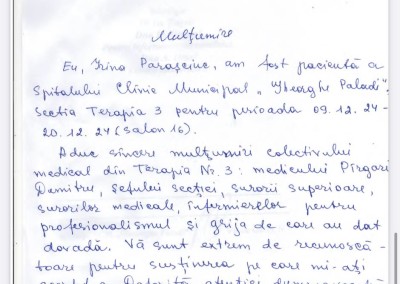 Mulțumire
Eu, Irina Parasciuc, am fost pacientă a
Spitalului Clinic Municipal „Gheorghe Paladi”,
secția Terapia 3 pentru perioada 09.12.24-
20.12.24 (salon 16).
Aduc sincere mulțumiri colectivului
medical din Terapia Nr. 3: medicului Pîrgari
Dumitru, șefului secției, surorii superioare,
surorilor medicale, infermierelor pentru
profesionalismul și grija de care au dat
dovadă. Vă sunt extrem de recunoscă-
toare pentru susținerea pe care mi-ați
Datorită atenției